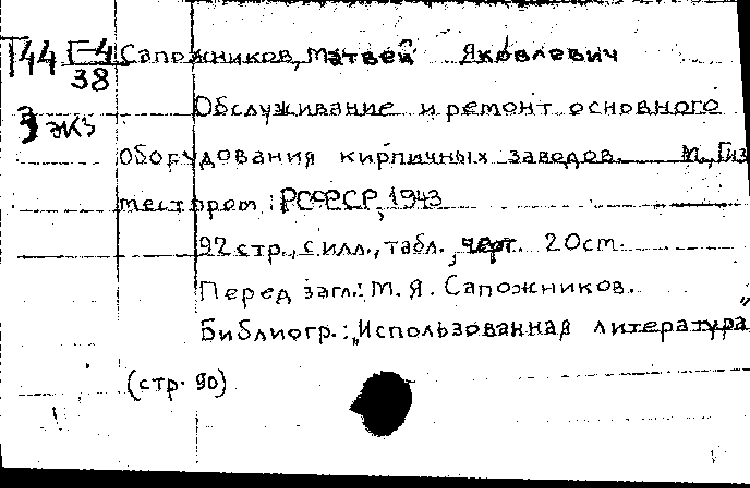 Г44 Г-4 Сапожников, Матвей Яковлевич
38
3 экз
Обслуживание и ремонт основного
оборудования кирпичных заводов. М., Гиз
местпром РСФСР, 1943
92 стр., с илл., табл., черт. 20см.
Перед загл.: М. Я. Сапожников.
Библиогр.: „Использованная литература"
(стр. 90)